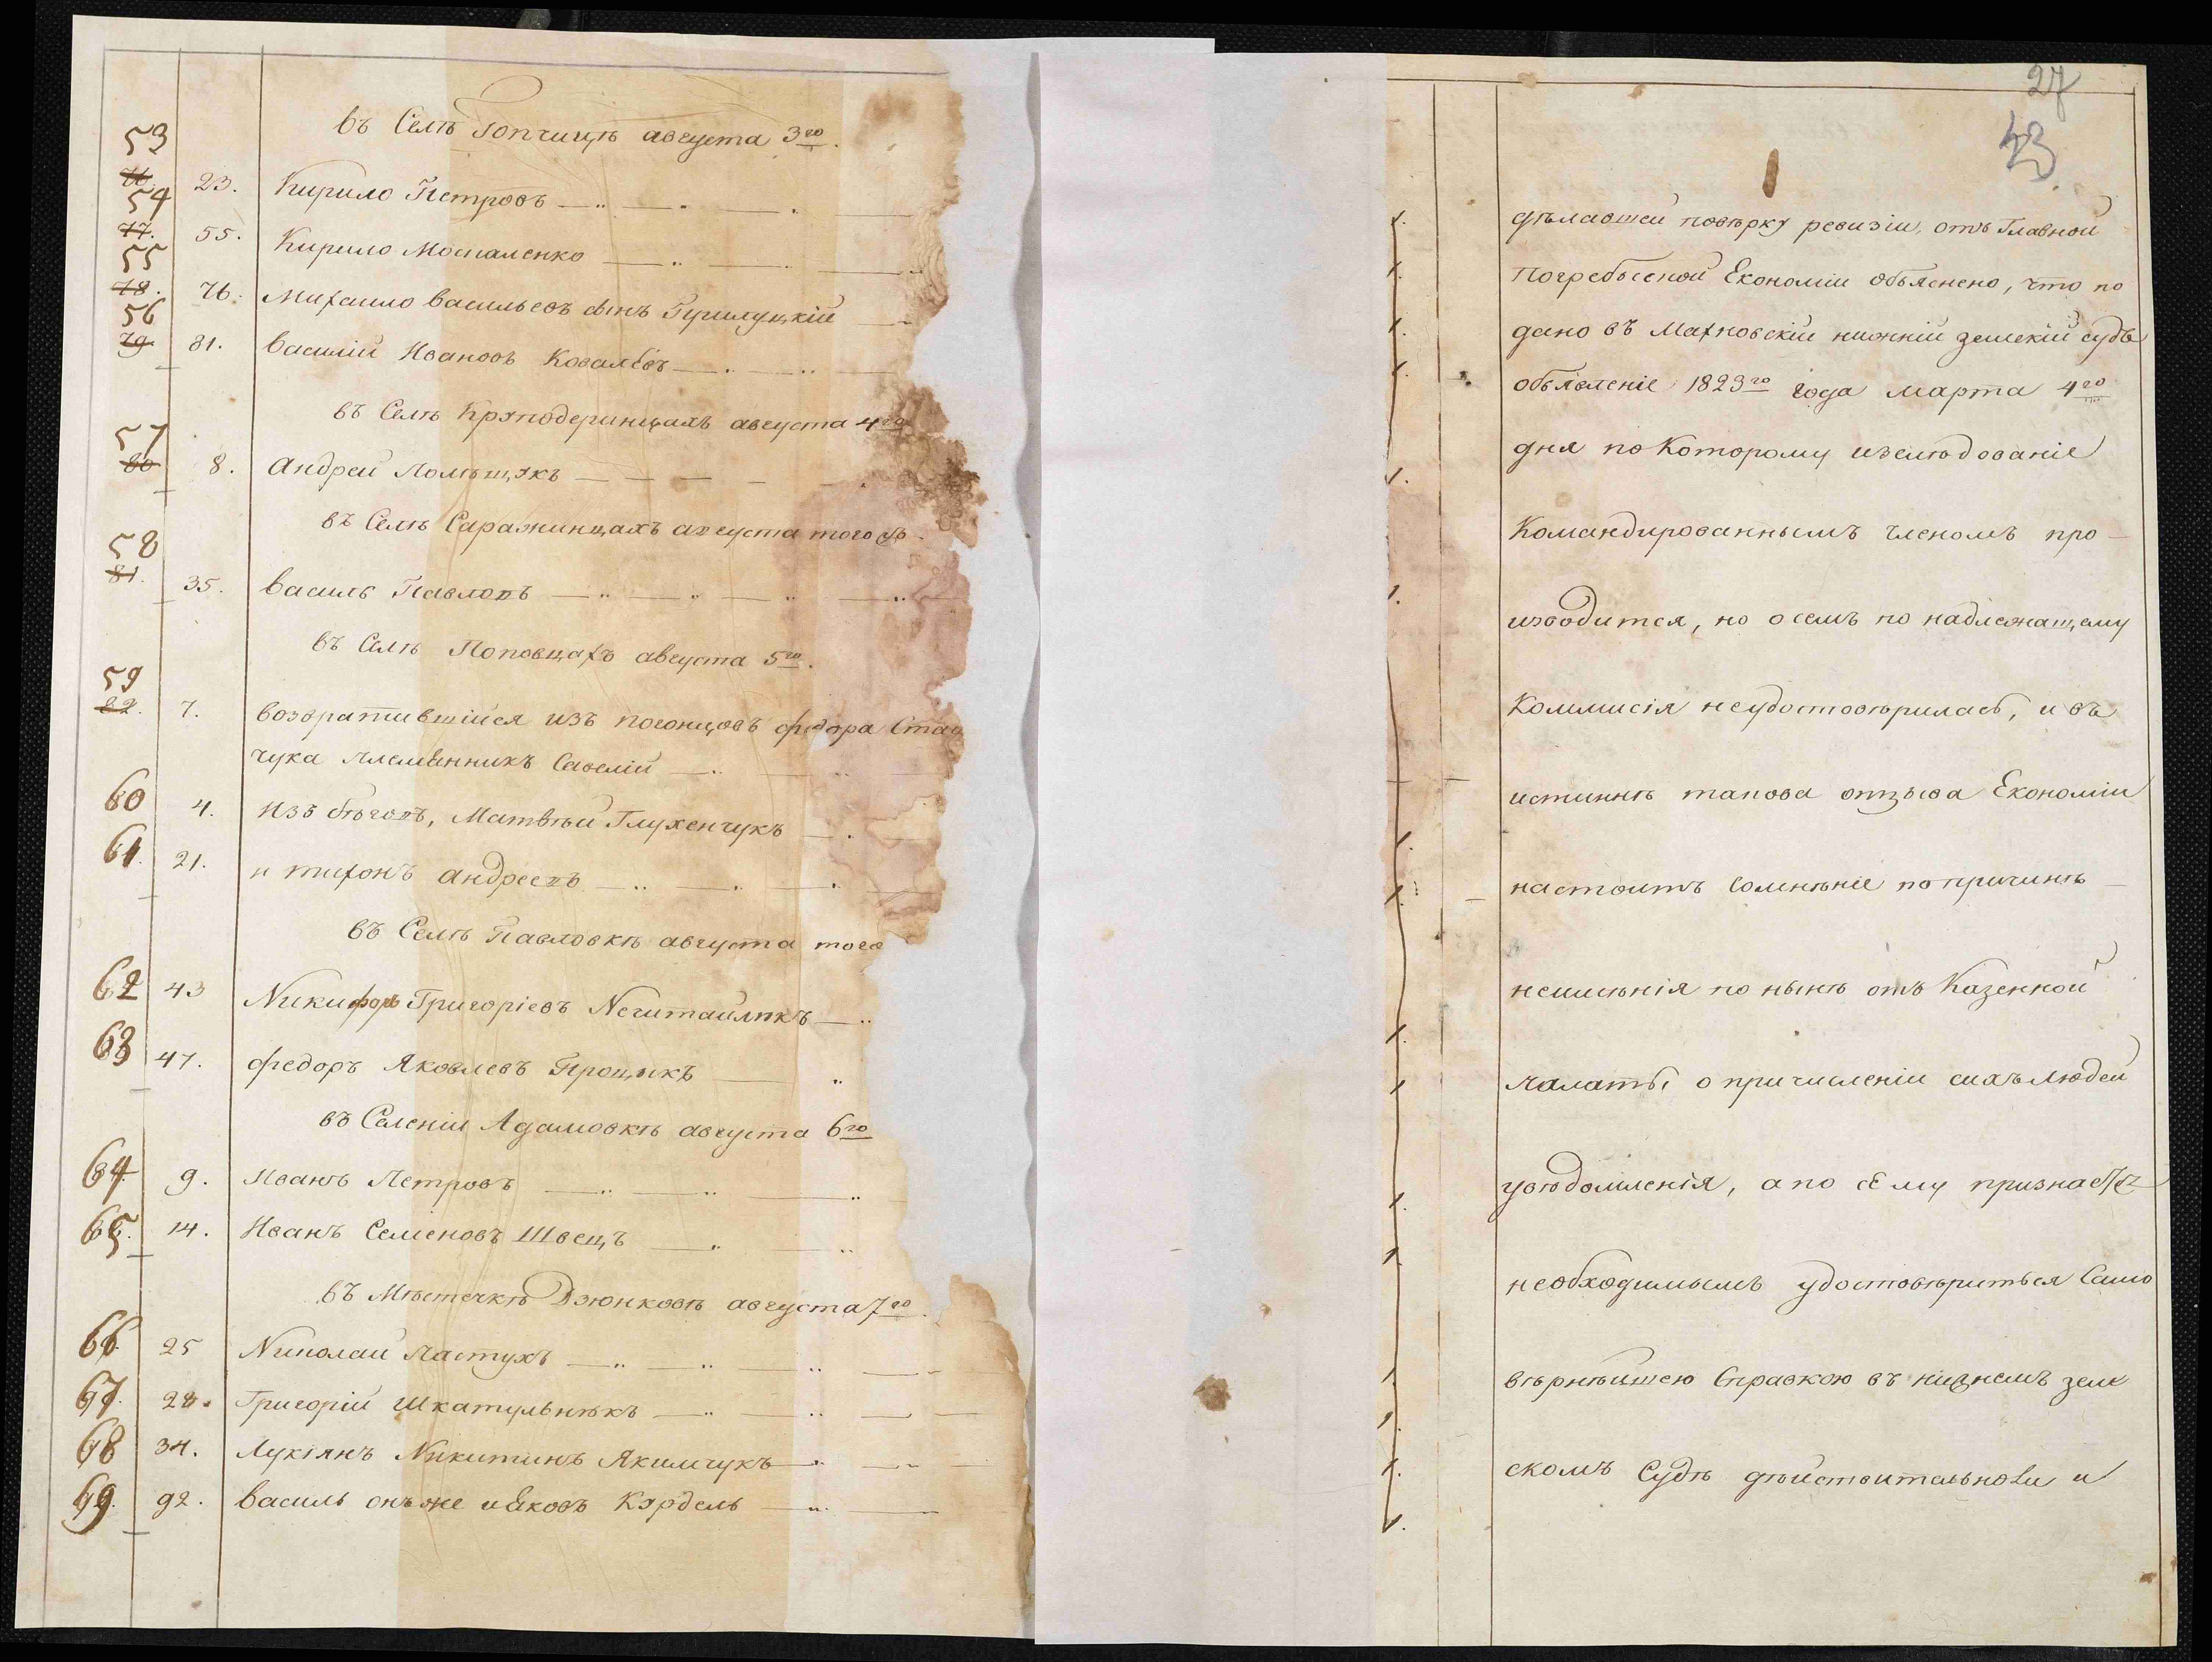 въ Селѣ Топчицѣ августа 3го.
53
76 23. Кирило Петровъ
54
77. 55. Кирило Москаленко
55
78. 76. Михаило васильевъ сынъ Прилуцкій
56
79 81. василій Ивановъ Ковалевъ
въ Селѣ Круподеринцахъ августа 4го
57
80 8. андрей
въ Селѣ Саражинцахъ августа того
58
81. 35. василь Павловъ
въ Селѣ Поповцахъ августа 5го.
59
82. 7. возвратившійся изъ погонцовъ федора Стас
чука племянникъ Савелій
60 4. Изъ бѣговъ, Матвѣй Глухенчукъ
61. 21. и тихонъ андреевъ
въ Селѣ Павловкѣ августа того
62 43 Никифоръ Григоріевъ Нечитайликъ
63 47. федоръ Яковлевъ Процикъ
въ Селеніи Адамовкѣ августа 6го
64 9. Иванъ Петровъ
65. 14. Иванъ Семеновъ Швецъ
въ Мѣстечкѣ Дзюнковѣ августа 7го.
66. 25 Николай пастухъ
67. 28. Григорій Шкатульникъ
68 34. Лукіянъ Никитинъ Якимчукъ
69. 92. василь онъже иЯковъ Кардель
27
43
дѣлавшей повѣрку ревизіи, отъ Главной
Погребыской Економіи объяснено, что по
дано въ Махновскій нижній земскій судъ
объявленіе 1823го года марта 4го
дня по Которому изслѣдованіе
Командированнымъ членомъ про-
изводится, но о семъ по надлежащему
Коммисія неудостовѣрилась, и въ
истиннѣ такова отзыва Економіи
настоитъ Сомнѣніе попричинѣ
неимѣнія по нынѣ отъ Казенной
палаты о причисленіи сихъ людей
увѣдомленія, а по сему признаетъ
необходимымъ удостовѣриться Само
вѣрнѣйшею Справкою въ нижнемъ зем
скомъ Судѣ дѣйствительноли и